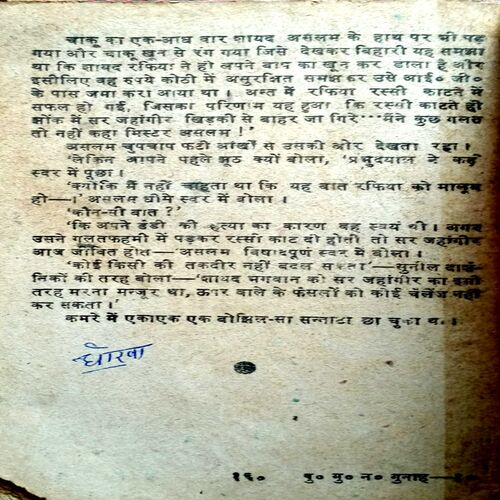 चाकू का एक-आध वार शायद असलम के हाथ पर भी पड़
गया और चाकू खून से रंग गया जिसे देखकर बिहारी यह समझा
था कि शायद रफिया ने ही अपने बाप का खून कर डाला है और
इसीलिए वह रुपये कोठी में असुरक्षित समझ कर उसे आई० जी०
के पास जमा करा आया था। अन्त में रफिया रस्सी काटने में
सफल हो गई, जिसका परिणाम यह हुआ कि रस्सी काटते ही
झोंक में सर जहांगीर खिड़की से बाहर जा गिरे···मैंने कुछ गलत
तो नहीं कहा मिस्टर असलम !'
असलम चुपचाप फटी आंखों से उसकी ओर देखता रहा।
'लेकिन आपने पहले झूठ क्यों बोला, 'प्रभुदयाल ने कड़े
स्वर में पूछा।
'क्योंकि मैं नहीं चाहता था कि यह बात रफिया को मालूम
हो—।' असलम धीमे स्वर में बोला।
'कौन-सी बात ?'
'कि अपने डैडी की हत्या का कारण वह स्वयं थी। अगर
उसने गलतफहमी में पड़कर रस्सी काट दी होती तो सर जहांगीर
आज जीवित होते—' असलम विषादपूर्ण स्वर में बोला।
'कोई किसी की तकदीर नहीं बदल सकता'—सुनील दार्श-
निकों की तरह बोला—'शायद भगवान को सर जहांगीर का इसी
तरह मरना मन्जूर था, ऊपर वाले के फैसलों को कोई चैलेंज नहीं
कर सकता।'
कमरे में एकाएक एक बोझिल-सा सन्नाटा छा चुका था।
धोखा
१६० पु० मु० न० गुनाह—१०